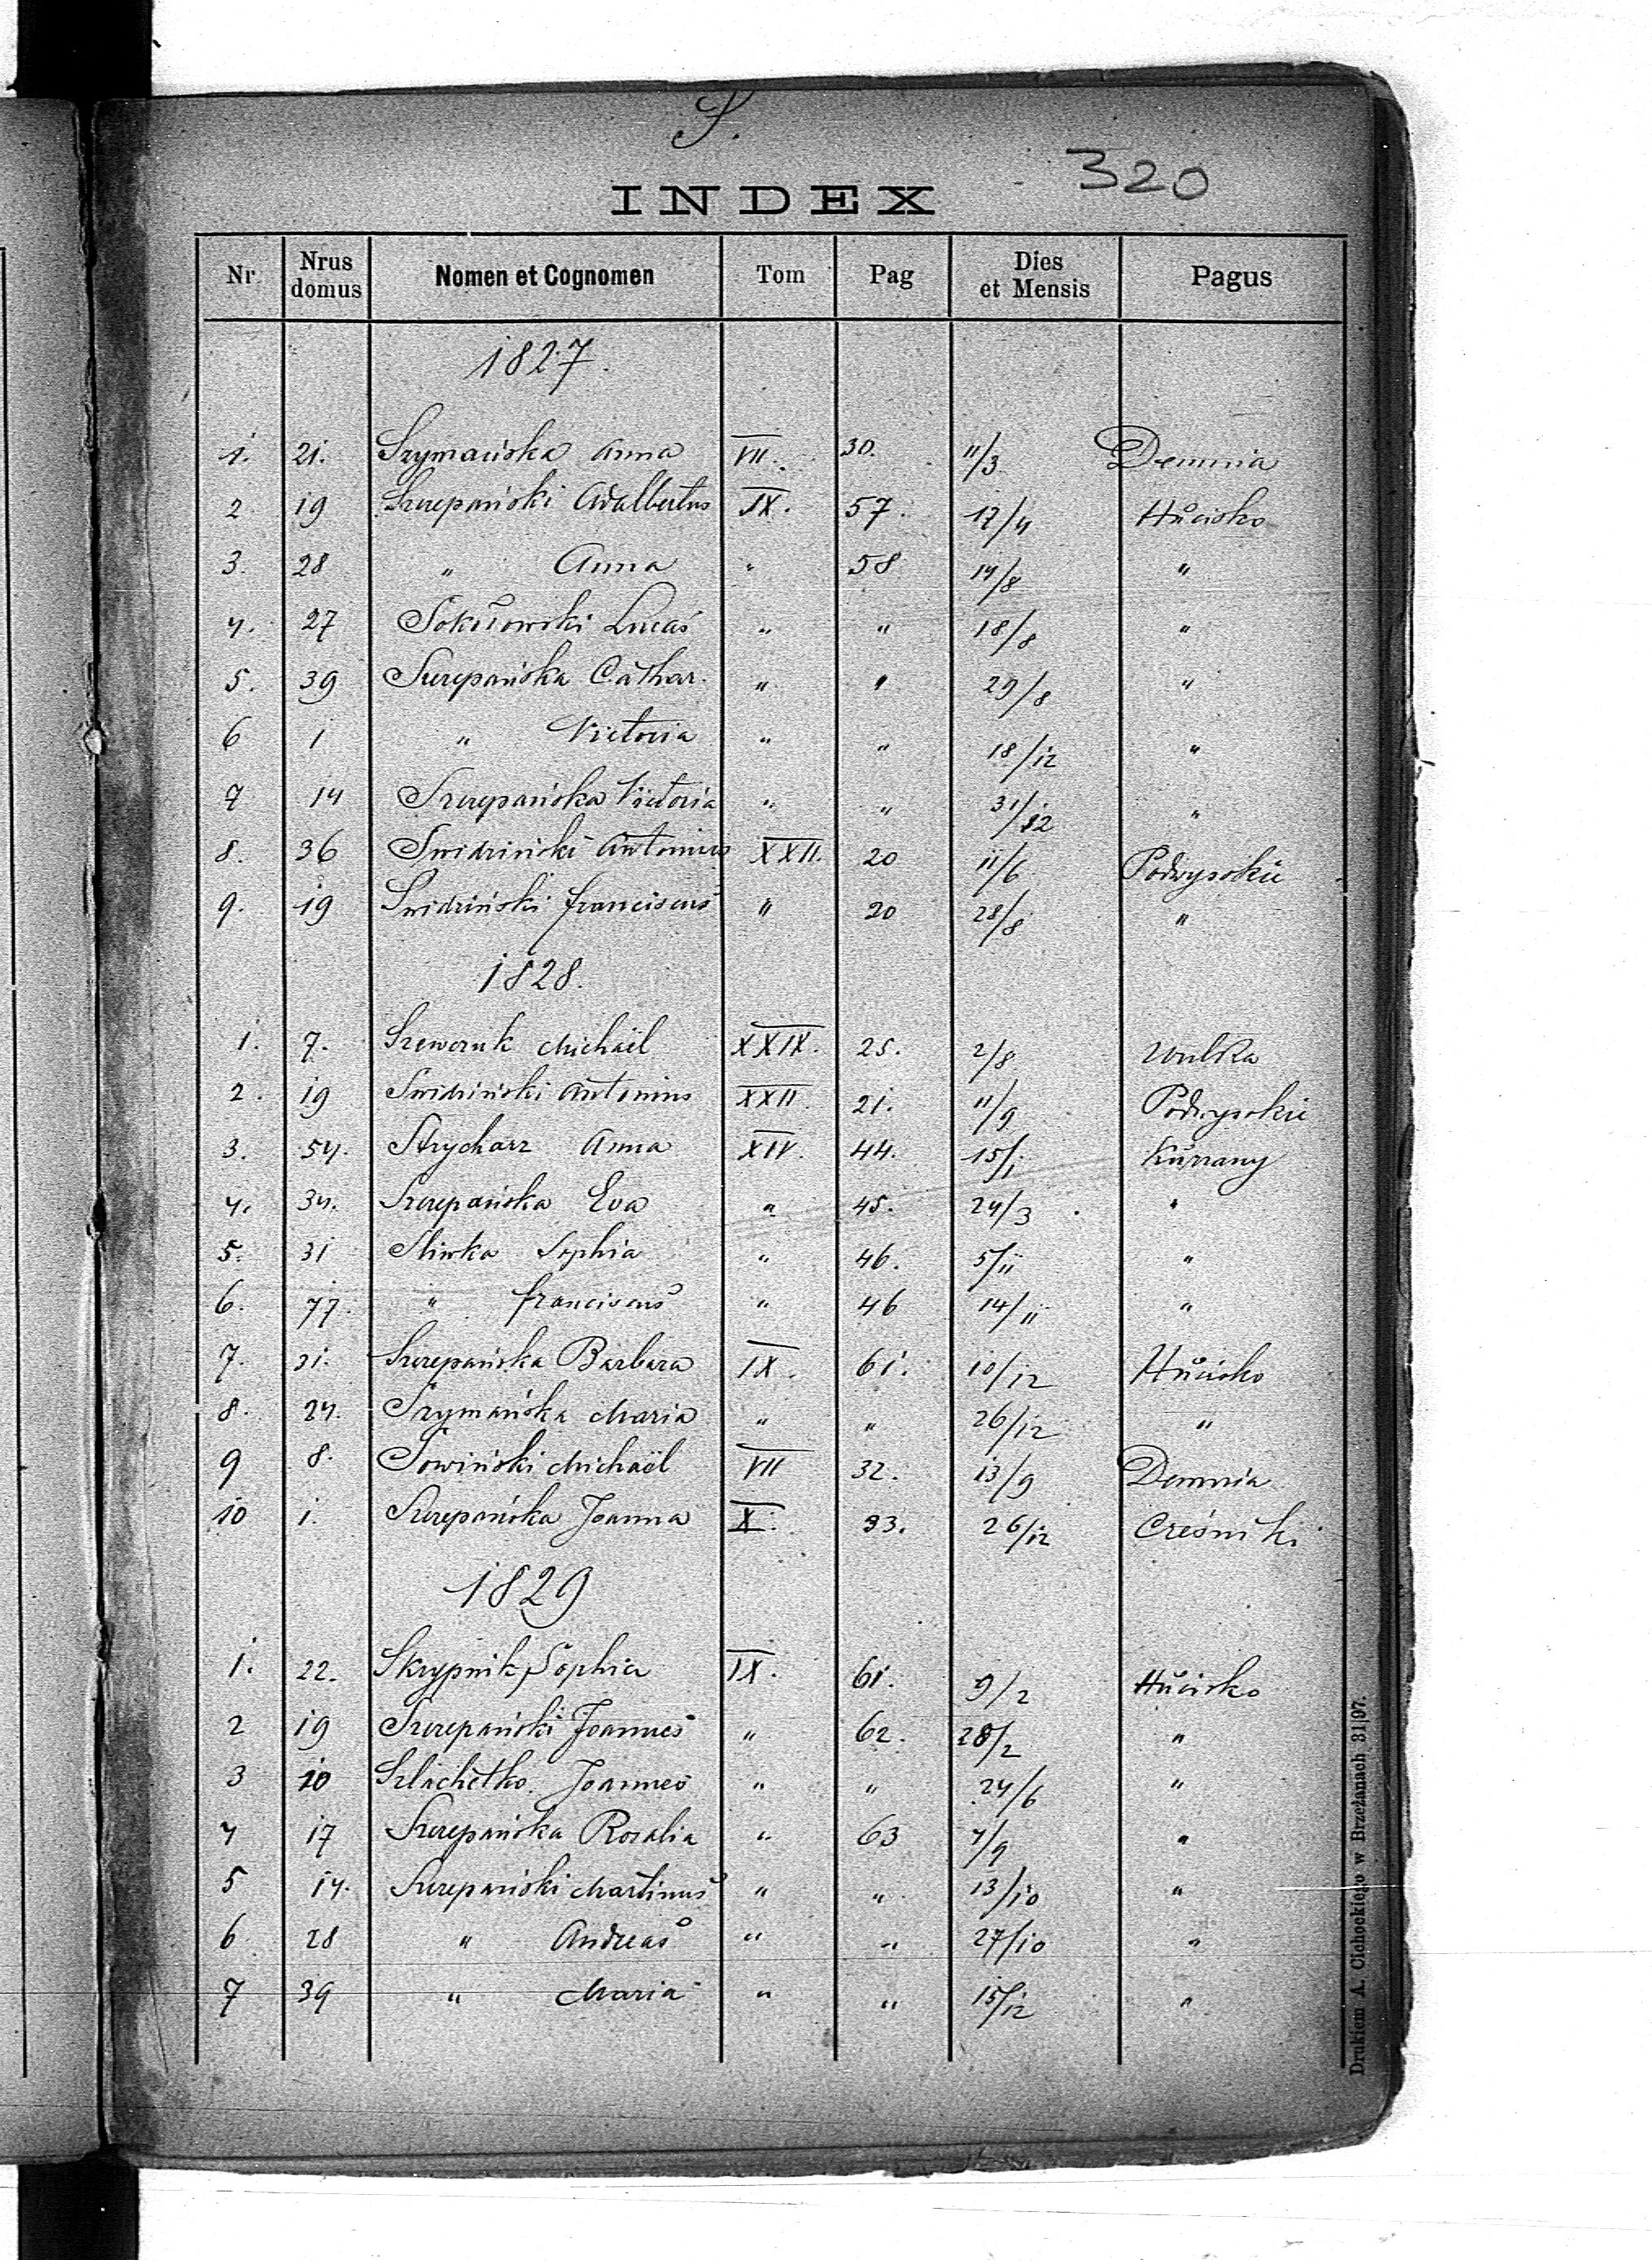 S.
320
INDEX
Nr Nrus domus Nomen et Cognomen Tom Pag Dies et Mensis Pagus
1827.
1. 21. Szymańska Anna VII. 30. 11/3 Demnia
2. 19 Szczepański Adalbertus IX. 57. 17/4 Hucisko
3. 28 " Anna " 58 14/8 "
4. 27 Sokołowski Lucas " " 18/8 "
5. 39 Szczepańska Cathar. " " 29/8 "
6 1 " Victoria " " 18/12 "
7 14 Szczepańska Victoria " " 31/12 "
8. 36 Swidziński Antonius XXII. 20 11/6 Podwysokie
9. 19 Swidziński Franciscus " 20 28/8 "
1828.
1. 7. Szewczuk Michaël XXIX. 25. 2/8 Wulka
2. 19 Swidziński Antonius XXII. 21. 11/9 Podwysokie
3. 54. Strycharz Anna XIV. 44. 15/1 Kurzany
4. 34. Szczepańska Eva " 45. 24/3 "
5. 31 Sliwka Sophia " 46. 5/11 "
6. 77. " Franciscus " 46 14/11 "
7. 31. Szczepańska Barbara IX. 61. 10/12 Hucisko
8. 24. Szymańska Maria " " 26/12 "
9 8. Sowiński Michaël VII 32. 13/9 Demnia
10 1. Szczepańska Joanna X. 33. 26/12 Cześniki
1829
1. 22. Skrypnik Sophia IX. 61. 9/2 Hucisko
2 19 Szczepański Joannes " 62. 28/2 "
3 10 Szlachetko Joannes " " 24/6 "
4 17 Szczepańska Rozalia " 63 4/9 "
5 14. Szczepański Martinus " " 13/10 "
6 28 " Andreas " " 27/10 "
7 39 " Maria " " 15/12 "
Drukiem A. Cichockiego w Brzeżanach 31|97.